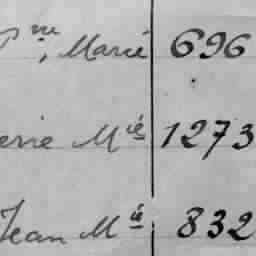 Pne, Marie 696
erie Mié 1273
Jean Mié 832